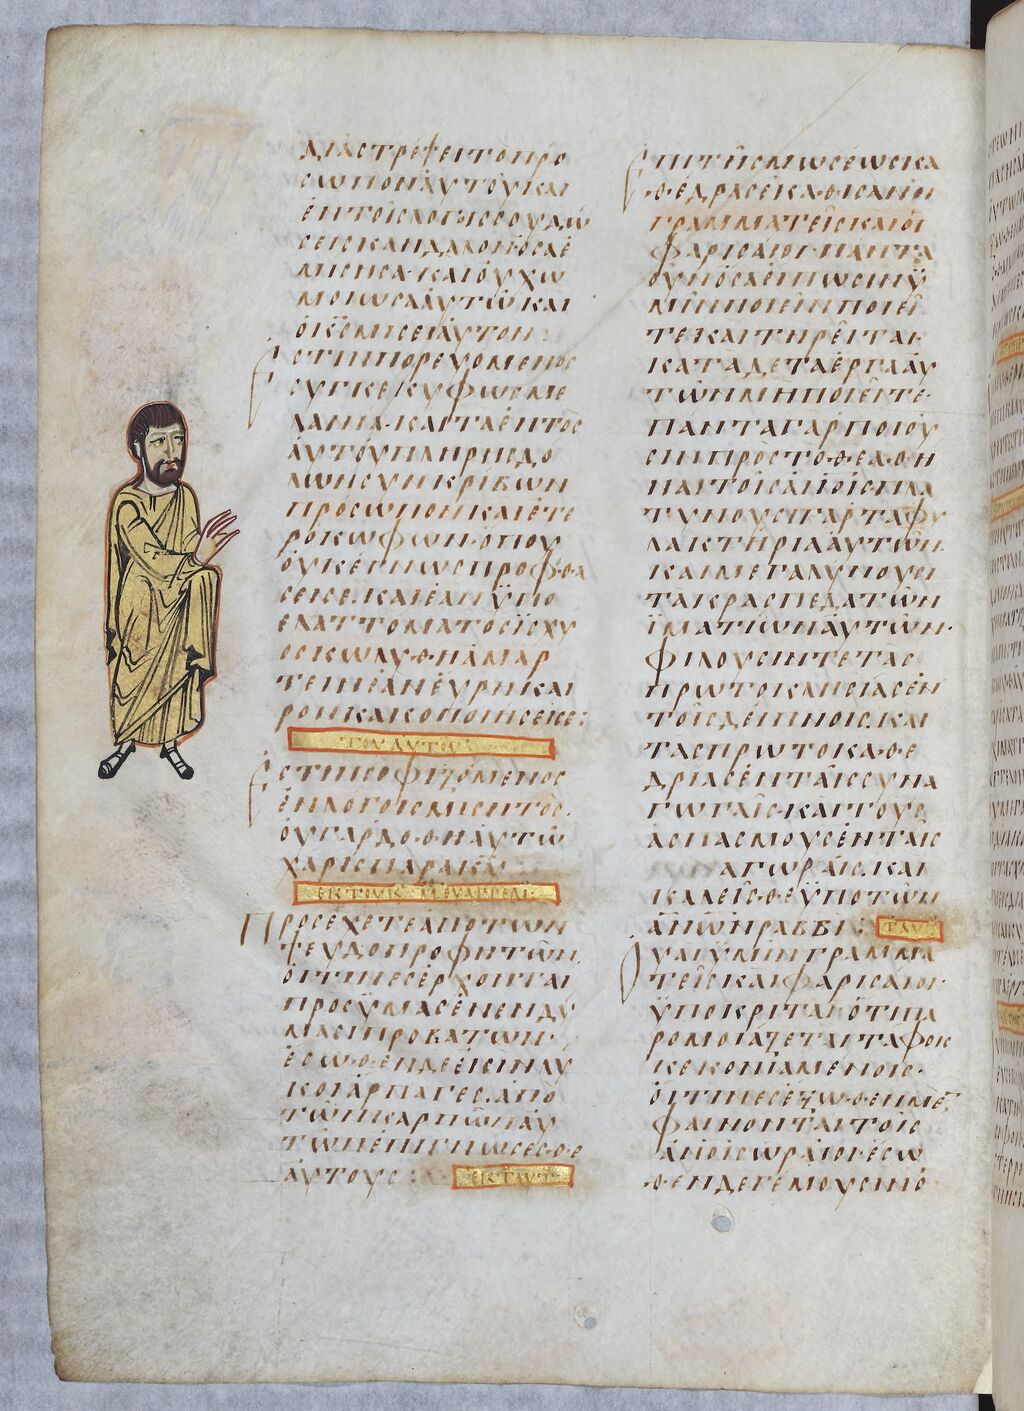 διαστρέψει το προ
σωπον αυτου και
εν τοις λογοις σου δω
σει σκανδαλον πολλα ε
μισησα και ουχ ω
μοιωσα αυτω και
ο κ̅ς̅ μισει αυτον
Εστιν πορευομενος
συγκεκυφως με
λανια και τα εντος
αυτου πληρη δο
λου συνκρυβων
προσωπον και ετε
ροκωφων οπου
ουκ επεγνωσ προφθα
σει σε και εαν υπο
ελαττωματος ισχυ
ος κωλυθη αμαρ
τειν εαν ευρη και
ρον κακοποιησει σε
ΤΟΥ ΑΥΤΟΥ
Εστιν σοφιζομενος
εν λογοις μισητος
ου γαρ δοθη αυτω
χαρις παρα κ̅υ̅
ΕΚ ΤΟΥ Κ ΜΤ ΕΥΑΓΓΕΛΙ
Προσεχετε απο των
ψευδοπροφητων
οιτινες ερχονται
προς υμας εν ενδυ
μασι προβατων
εσωθεν δε εισιν λυ
κοι αρπαγες απο
των καρπων αυ
των επιγνωσεσθε
αυτους
ΕΚ ΤΩΤ
Επι της μωσεως κα
θεδρας εκαθισαν οι
γραμματεις και οι
φαρισαιοι παντα
ουν οσα ειπωσιν υ
μιν ποιειν ποιει
τε και τηρειται
κατα δε τα εργα αυ
των μη ποιειτε
παντα γαρ ποιου
σιν προς το θεαθη
ναι τοις α̅ν̅ο̅ι̅ς̅ πλα
τυνουσι γαρ τα φυ
λακτηρια αυτων
και μεγαλυνουσι
τα κρασπεδα των
ιματιων αυτων
φιλουσιν τε τας
πρωτοκλησιας εν
τοις δειπνοις και
τας πρωτοκαθε
δριας εν ταις συνα
γωγαις και τους
ασπασμους εν ταις
αγωραις και
καλεισθε υπο των
α̅ν̅ω̅ν̅ ραββι ΤΑΥ
Ουαι υμιν γραμμα
τεις και φαρισαιοι
υποκριται οτι πα
ρομοιαζεται ταφοις
κεκονιαμενοις
οιτινες εξωθεν με̅
φαινονται τοις
α̅ν̅ο̅ι̅ς̅ ωραιοι εσω
θεν δε γεμουσιν ο